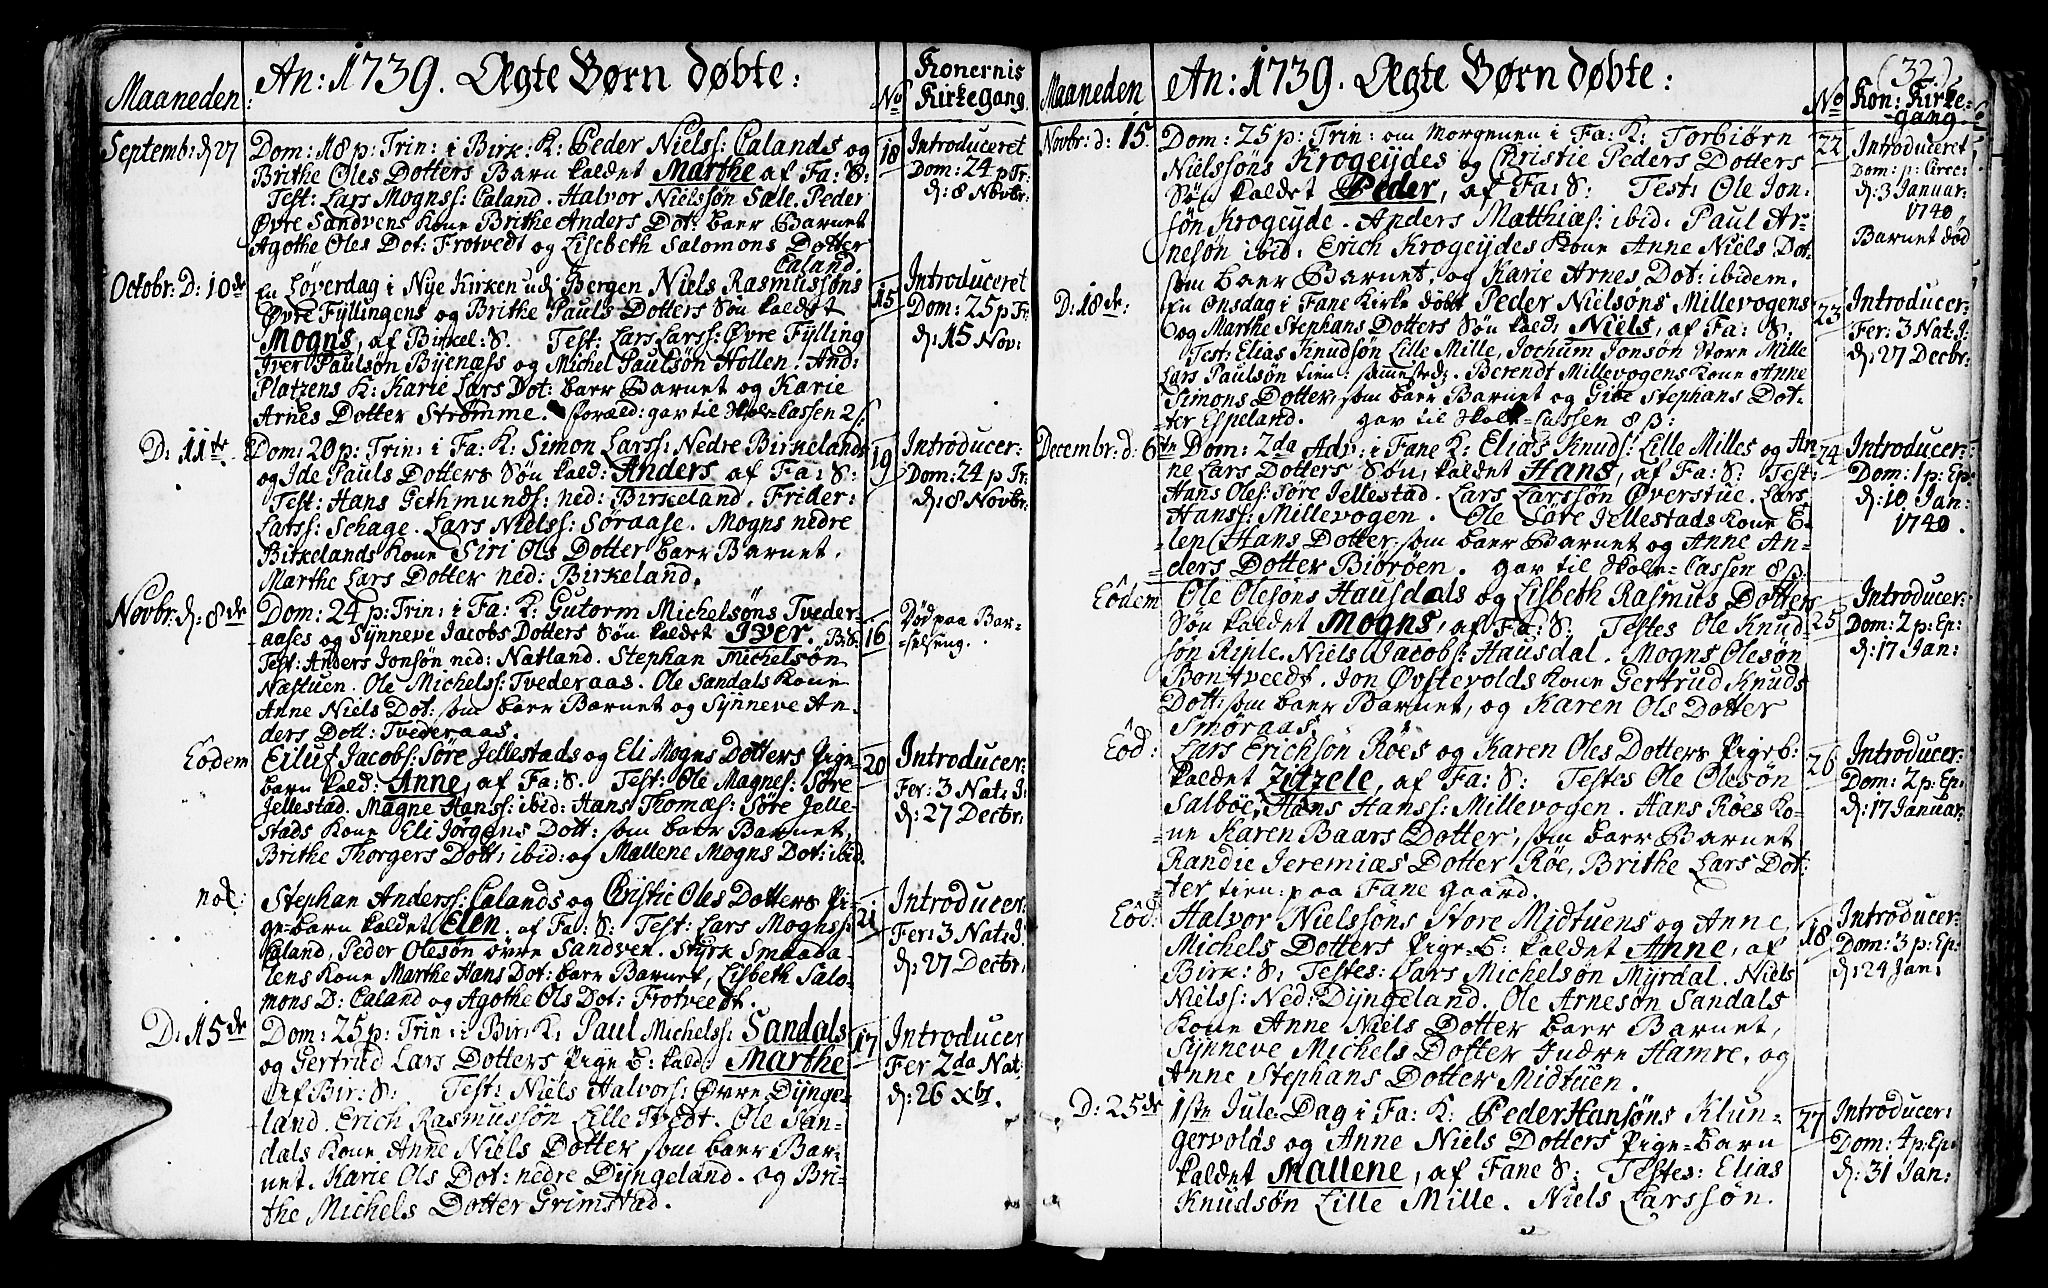 Maaneden
An: 1739. Ægte Børn døbte:
No
Konernis
Kirkegang.
Septemb: d 27
Dom: 18 p: Trin: i Birk: K: Peder Nielss: Calands og
Brithe Oles Dotters Barn kaldet Marthe af Fa: S:
Test: Lars Mognss: Caland. Halvor Nielssøn Sæle. Peder
Øvre Sandvens Kone Brithe Anders Dot: baer Barnet
Agothe Oles Dot: Frotvedt og Lisebeth Salomons Dotter
Caland.
18
Introduceret
Dom: 24 p Tr:
d: 8 Novbr:
Octobr: D: 10de
En Løverdag i Nye Kirken ud Bergen Niels Rasmussøns
Øvre Fyllingens og Brithe Pauls Dotters Søn kaldet
Mogns, af Birkel: S. Test: Lars Larss: Øvre Fylling
Iver Paulsøn Bijenæss og Michel Paulsøn Hollen. And:
Platzens K: Karie Lars Dot: baer Barnet og Karie
Arnes Dotter Strømme. Foræld: gav til Skole-Cassen 2 s
15
Introduceret
Dom: 25 p Tr:
d: 15 Nov:
D: 11te
Dom: 20 p: Trin: i Fa: K: Simon Larss: Nedre Birkelands
og Ide Pauls Dotters Søn kald: Anders af Fa: S:
Test: Hans Gethmunds: ned: Birkeland. Frider:
Larss: Schage. Lars Nielss: Søraase. Mogns nedre
Birkelands Kone Siri Ols Dotter baer Barnet.
Marthe Lars Dotter ned: Birkeland.
19
Introducer:
Dom: 24 p Tr:
d: 8 Novbr:
Novbr: d: 8de
Dom: 24 p: Trin: i Fa: K: Gutorm Michelsøns Tveder-
aases og Synneve Jacobs Dotters Søn kaldet Iver. B: S:
Test: Anders Jonsøn ned: Natland. Stephan Michelsøn
Nastuen. Ole Michelss: Tvederaas. Ole Sandals Kone
Anne Niels Dot: som baer Barnet og Synneve An-
ders Dott: Tvederaas.
16
Død paa Bar-
-selseng.
Eodem
Eiluf Jacobs: Søre Jellestads og Eli Mogns Dotters Pige-
barn kald: Anne, af Fa: S. Test: Ole Magnes: Søre
Jellestad. Magne Hanss: ibid: Hans Thomæs: Søre Jelle-
stads Kone Eli Jørgens Dott: som baer Barnet,
Brithe Thorgers Dott: ibid: og Mallene Mogns Dot: ibid.
20
Introducer:
Fer: 3 Nat: J:
d: 27 Decbr:
Stephan Anderss: Calands og Christie Oles Dotters Pi-
ge-barn kaldet Elen, af Fa: S: Test: Lars Mognss:
Caland, Peder Olesøn øvre Sandven. Styrk Smaada-
lens Kone Marthe Hans Dot: baer Barnet, Lisbeth Salo-
mons D: Caland og Agothe Ols Dot: Frotvedt.
21
Introducer:
Fer: 3 Nat: J:
d: 27 Decbr:
D: 15de
Dom: 25 p: Trin: i Bir: K: Paul Michelss: Sandals
og Gertrud Lars Dotters Pige B: kald: Marthe
af Bir: S: Test: Niels Halvors: Øvre Dijnge-
land. Erich Rasmussøn Lille Tvedt. Ole San-
dals Kone Anne Niels Dotter som baer Bar-
net. Karie Ols Dot: nedre Dijngeland. og Bri-
the Michels Dotter Grimstad.
17
Introducer
Fer 2da Nat:
d: 26 Xbr.
Maaneden
An: 1739. Ægte Børn døbte:
(32.)
No
Kon: Kirke-
gang
Novbr: d: 15.
Dom: 25 p: Trin: om Morgenen i Fa: K: Torbiørn
Nielssøns Krogeijdes og Christie Peders Dotters
Søn kaldet Peder, af Fa: S: Test: Ole Jon-
søn Krogeijde. Anders Matthiæs: ibid: Paul Ar-
nesøn ibid: Erich Krogeijdes Kone Anne Niels Dot:
som baer Barnet, og Karie Arnes Dot: ibidem.
22
Introduceret
Dom: p: Circc:
d: 3 Januar.
1740
Barnet død
D: 18de:
En Onsdag i Fane Kirke døbt Peder Nielsøns Millevogens
og Marthe Stephans Dotters Søn kald: Niels, af Fa: S:
Test: Elias Knudsøn Lille Mille, Jochum Jonsøn Store Mille
Lars Paulsøn tien: sammested. Berendt Millevogens Kone Anne
Simons Dotter, som baer Barnet og Gibe Stephans Dot-
ter Espeland. gav til Skole-Cassen 8 s:
23
Introducer:
Fer: 3 Nat: J:
d: 27 Decbr:
Decembr: d: 6te
Dom: 2da Adv: i Fane K: Elias Knuds: Lille Milles og An-
ne Lars Dotters Søn, kaldet Hans, af Fa: S: Test:
Hans Oles: Søre Jellestad. Lars Larssøn Øverstue. Lars
Hanss: Millevogen. Ole Søre Jellestads Kone E-
len Hans Dotter, som baer Barnet og Anne An-
ders Dotter Biørøen. gav til Skole-Cassen 8 s.
24
Introducer:
Dom: 1 p: Ep:
d: 10 Jan:
1740.
Eodem
Ole Olesøns Hausdals og Lisbeth Rasmus Dotters
Søn kaldet Mogns, af Fa: S: Testes Ole Knud-
søn Riple. Niels Jacobs: Hausdal. Mogns Olesøn
Bontveedt. Jon Øvstevolds Kone Gertrud Knuds
Dott: som baer Barnet, og Karen Ols Dotter
Smøraas.
25
Introducer:
Dom: 2 p: Ep:
d: 17 Jan:
Eod:
Lars Erichsøn Røes og Karen Oles Dotters Pige b:
kaldet Zitzele, af Fa: S: Testes Ole Olesøn
Salbøe, Hans Hanss: Millevogen. Hans Røes Ko-
ne Karen Baars Dotter, som baer Barnet
Randie Jeremiæs Dotter Røe, Brithe Lars Dot-
ter tien: paa Fane gaard.
26
Introducer:
Dom: 2 p: Ep:
d: 17 Januar:
Eod:
Halvor Nielssøns Store Midtuens og Anne
Michels Dotters Pige-B: kaldet Anne, af
Birk: S: Testes: Lars Michelsøn Myrdal. Niels
Nielss: Ned: Dijngeland. Ole Arnesøn Sandals
Kone Anne Niels Dotter baer Barnet,
Synneve Michels Dotter Indre Hamre, og
Anne Stephans Dotter Midtuen.
18
Introducer-
Dom: 3 p: Ep:
d: 24 Jan:
D: 25de
1ste Jule-Dag i Fa: K: Peder Hansøns Klun-
gervolds og Anne Niels Dotters Pige-barn
kaldet Mallene, af Fane S: Testes: Elias
Knudsøn Lille Mille. Niels Larssøn.
27
Introducer:
Dom: 4 p: Ep:
d: 31 Jan: